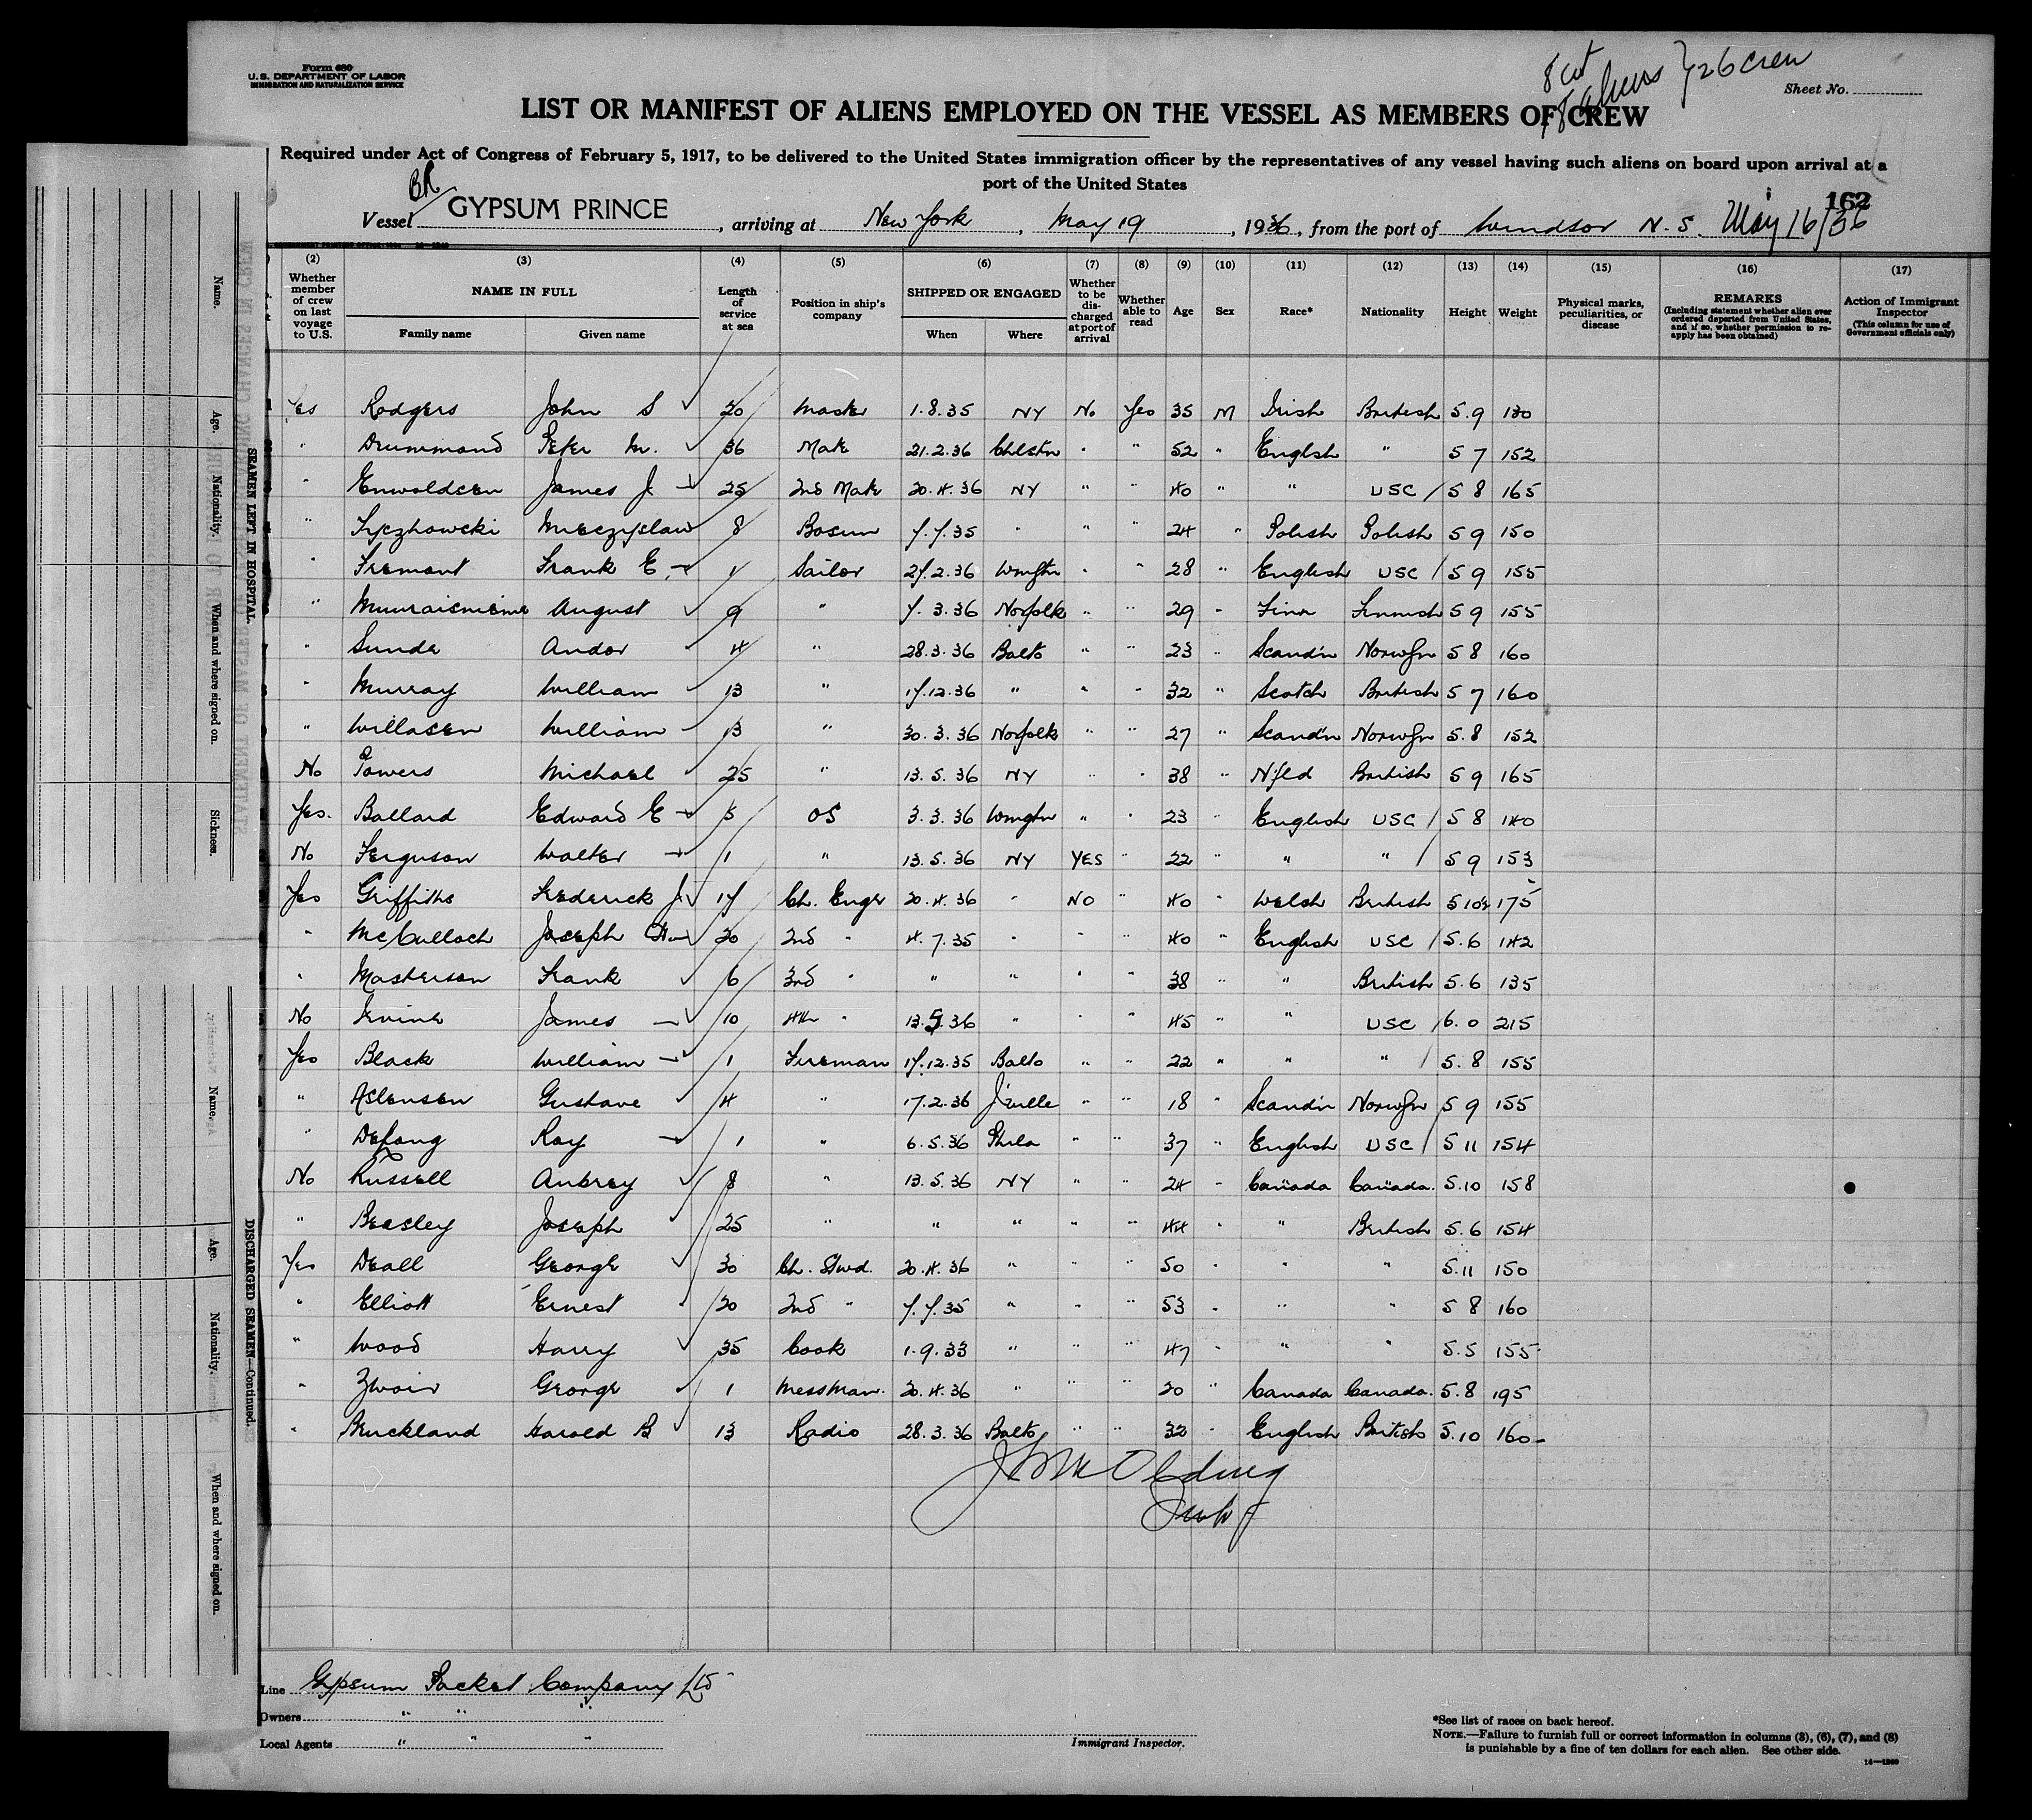 Form 680
U.S. DEPARTMENT OF LABOR
IMMIGRATION AND NATURALIZATION SERVICE
8 cit
18 aliens } 26 crew
Sheet No.
LIST OR MANIFEST OF ALIENS EMPLOYED ON THE VESSEL AS MEMBERS OF CREW
Required under Act of Congress of February 5, 1917, to be delivered to the United States immigration officer by the representatives of any vessel having such aliens on board upon arrival at a
port of the United States
162
Br
Vessel GYPSUM PRINCE, arriving at New York, May 19, 1936, from the port of Windsor N.S. May 16/36
(2) (3) (4) (5) (6) (7) (8) (9) (10) (11) (12) (13) (14) (15) (16) (17)
Whether member of crew on last voyage to U.S.
NAME IN FULL
Family name Given name
Length of service at sea
Position in ship's company
SHIPPED OR ENGAGED
When Where
Whether to be discharged at port of arrival
Whether able to read
Age
Sex
Race*
Nationality
Height
Weight
Physical marks, peculiarities, or disease
REMARKS
(Including statement whether alien ever ordered deported from United States, and if so, whether permission to reapply has been obtained)
Action of Immigrant Inspector
(This column for use of Government officials only)
Yes Rodgers John S 20 Master 1.8.35 NY No Yes 35 M Irish British 5.9 130
" Drummond Peter M. 36 Mate 21.2.36 Chlstn " " 52 " English " 5 7 152
" Enwoldsen James J 25 2nd Mate 20.4.36 NY " " 40 " " USC 5 8 165
" Lyczkowski Mieczyslaw 8 Bosun 7.7.35 " " " 24 " Polish Polish 5 9 150
" Fremont Frank E 1 Sailor 27.2.36 Wmgtn " " 28 " English USC 5 9 155
" August 9 " 7.3.36 Norfolk " " 29 " Finn Finnish 5 9 155
" Sunde Andor 4 " 28.3.36 Balto " " 23 " Scand'n Norwgn 5 8 160
" Murray William 13 " 17.12.36 " " " 32 " Scotch British 5 7 160
" Willasen William 13 " 30.3.36 Norfolk " " 27 " Scand'n Norwgn 5.8 152
No Powers Michael 25 " 13.5.36 NY " " 38 " Nfld British 5 9 165
Yes. Ballard Edward E 5 OS 3.3.36 Wmgtn " " 23 " English USC 5 8 140
No Ferguson Walter 1 " 13.5.36 NY YES " 22 " " " 5 9 153
Yes Griffiths Frederick J 17 Ch. Engr 20.4.36 " NO " 40 " Welsh British 5 10½ 175
" McCulloch Joseph 20 2nd " 4.7.35 " " " 40 " English USC 5.6 142
" Masterson Frank 6 3rd " " " " " 38 " " British 5.6 135
No Irvine James 10 4th " 13.5.36 " " " 45 " " USC 6.0 215
Yes Black William 1 Fireman 17.12.35 Balto " " 22 " " " 5.8 155
" Aslensen Gustave 4 " 17.2.36 J'ville " " 18 " Scand'n Norwgn 5 9 155
" DeLong Roy 1 " 6.5.36 Phila " " 37 " English USC 5 11 154
No Russell Aubrey 8 " 13.5.36 NY " " 24 " Canada Canada. 5.10 158
" Beasley Joseph 25 " " " " " 44 " " British 5.6 154
Yes Deall George 30 Ch. Stwd. 20.4.36 " " " 50 " " " 5.11 150
" Elliott Ernest 20 2nd " 7.7.35 " " " 53 " " " 5 8 160
" Wood Harry 35 Cook 1.9.33 " " " 47 " " " 5.5 155
" Zwair George 1 Messman. 20.4.36 " " " 20 " Canada Canada. 5.8 195
" Buckland Harold B 13 Radio 28.3.36 Balto " " 32 " English British 5.10 160
Line Gypsum Packet Company Ltd
Owners " " "
Local Agents " " "
Immigrant Inspector.
*See list of races on back hereof.
NOTE.—Failure to furnish full or correct information in columns (3), (6), (7), and (8)
is punishable by a fine of ten dollars for each alien. See other side.
14—1260
SEAMEN LEFT IN HOSPITAL.
Name. Age. Nationality. When and where signed on. Sickness.
DISCHARGED SEAMEN—Continued.
Name. Age. Nationality. When and where signed on.